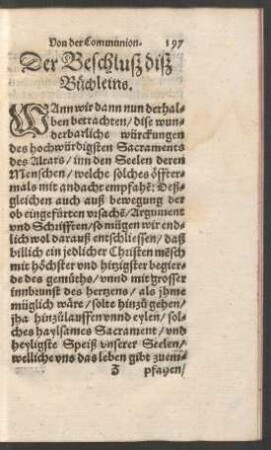 Von der Communion. 197
Der Beschluß diß
Büchleins.
WAnn wir dann nun derhal-
ben betrachten / dise wun-
derbarliche würckungen
des hochwürdigsten Sacraments
des Altars / inn den Seelen deren
Menschen / welche solches öffter-
mals mit andacht empfahē: Deß-
gleichen auch auß bewegung der
ob eingefürten vrsachē / Argument
vnd Schrifften / so mügen wir end-
lich wol darauß entschliessen / daß
billich ein jedlicher Christen mēsch
mit höchster vnd hitzigster begier-
de des gemüths / vnnd mit grosser
innbrunst des hertzens / als jhme
müglich wäre / solte hinzů gehen /
jha hinzůlauffen vnnd eylen / sol-
ches haylsames Sacrament / vnd
heyligste Speiß vnserer Seelen /
welliche vns das leben gibt zuem-
pfahen /